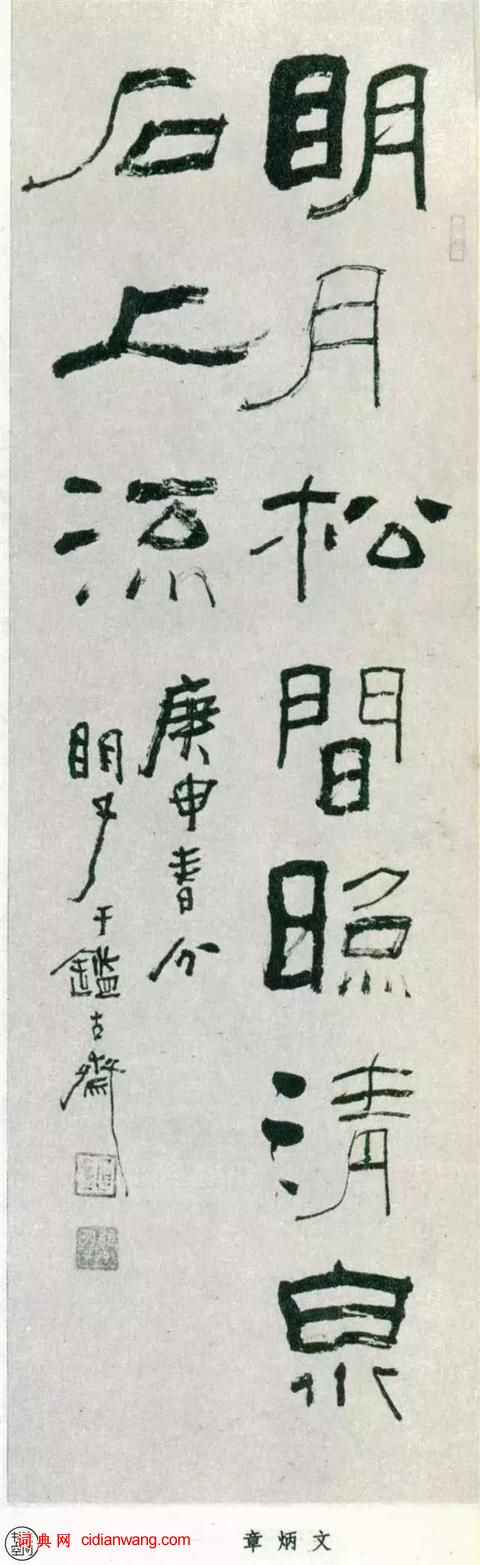 眀月松間照清泉
石上流
庚申春分
眀于鑑古齋
词典网 cidianwang.com
章炳文